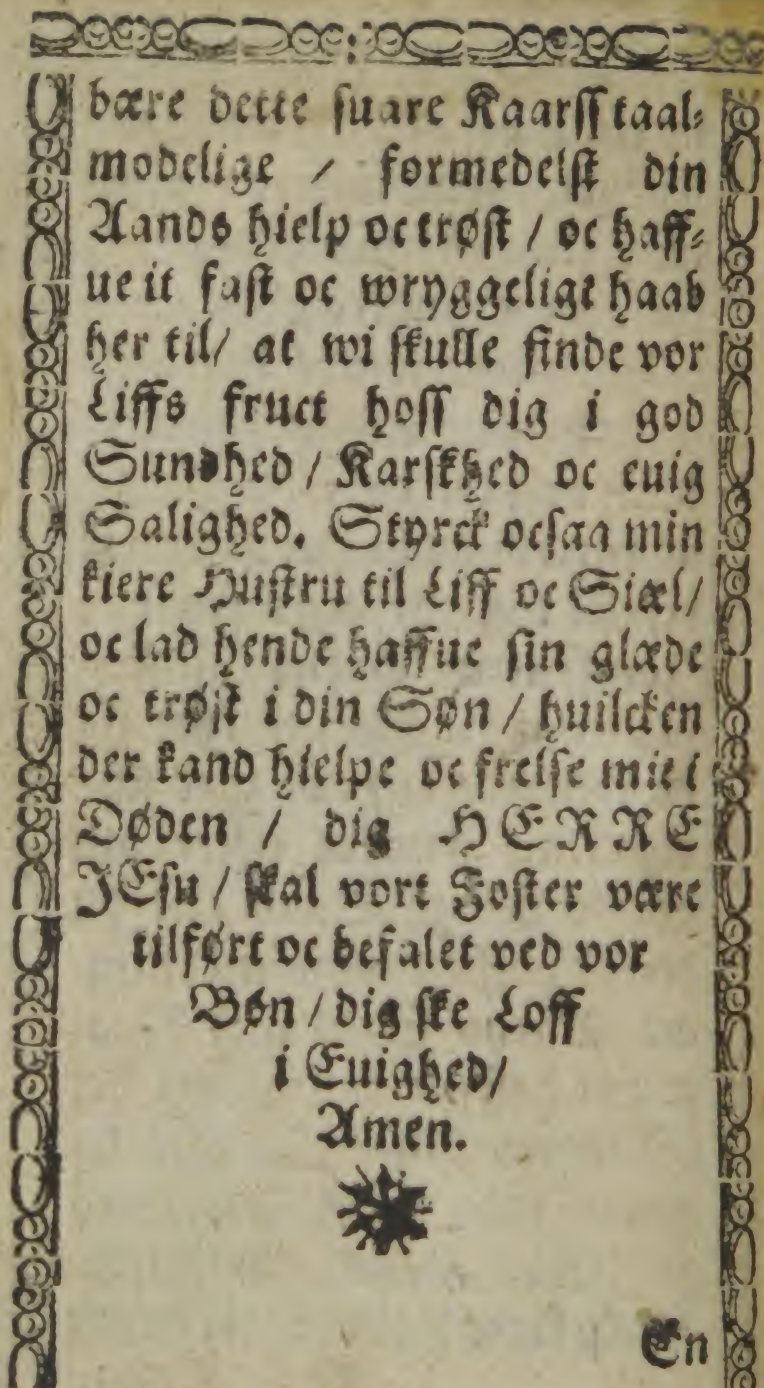 bære dette suare Kaarss taal⸗
modelige / formedelst din
Aands hielp oc trøst / oc haff⸗
ue it fast oc wryggeligt haab
her til/ at wi skulle finde vor
Liffs fruct hoss dig i god
Sundhed / Karskhed oc euig
Salighed. Styrck ocsaa min
kiere Hustru til Liff oc Siæl/
oc lad hende haffue sin glæde
oc trøst i din Søn / huilcken
der kand hielpe oc frelse mit i
Døden / dig HERRE
JEsu / skal vort Foster være
tilført oc befalet ved vor
Bøn / dig ske Loff
i Euighed/
Amen.
En